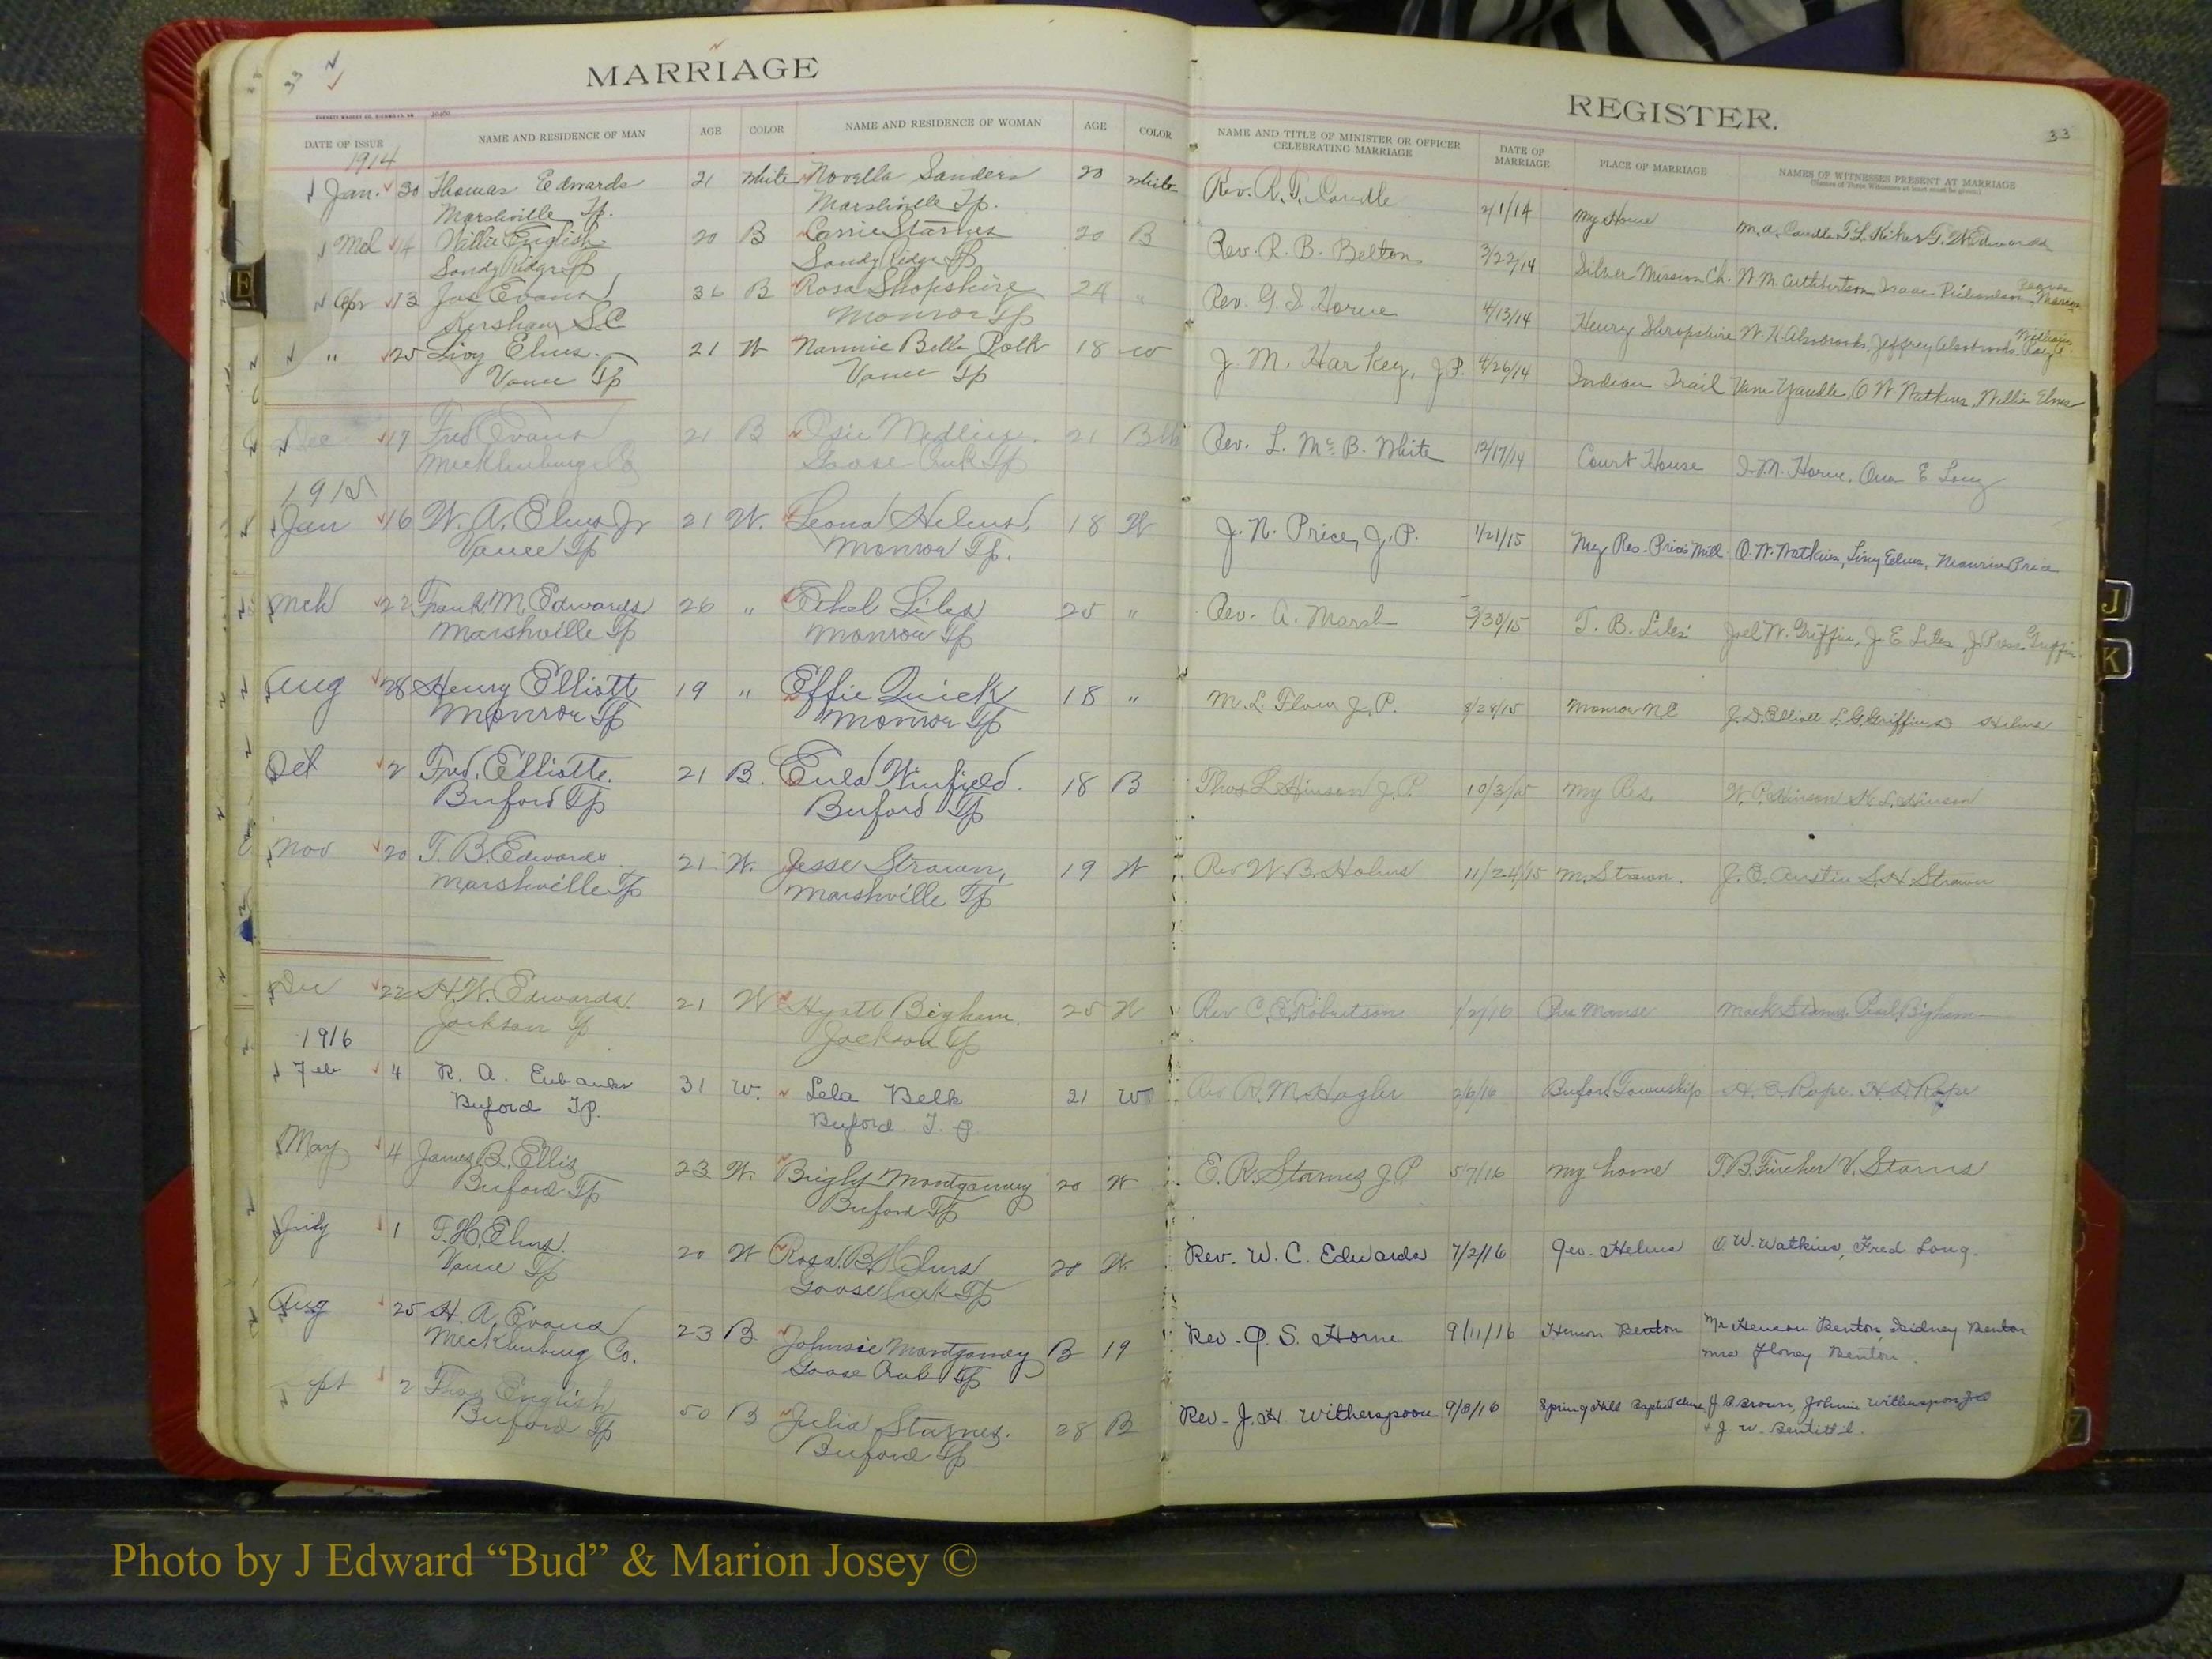 33
MARRIAGE
REGISTER.
33
DATE OF ISSUE
NAME AND RESIDENCE OF MAN
AGE
COLOR
NAME AND RESIDENCE OF WOMAN
AGE
COLOR
NAME AND TITLE OF MINISTER OR OFFICER CELEBRATING MARRIAGE
DATE OF MARRIAGE
PLACE OF MARRIAGE
NAMES OF WITNESSES PRESENT AT MARRIAGE
1914
Jan. 30 Thomas Edwards 21 White Novella Sanders 20 White Rev. R. T. Caudle 2/1/14 My House
Marshville Tp. Marshville Tp.
Mch 14 Willie English 20 B Carrie Starnes 20 B Rev. R. B. Belton 3/22/14 Silver Mission Ch. W. M. Cuthbertson
Sandy Ridge Tp Sandy Ridge Tp
Apr 13 Jas Evans 36 B Rosa Shopshire 24 " Rev. G. S. Horne 4/13/14 Henry Shropshire
Kershaw S.C Monroe Tp
" 25 Livy Elms. 21 W Nannie Bell Polk 18 W J. M. Harkey, J.P. 4/26/14 Indian Trail Vann Yandle, O W Watkins, Willie Elms
Vance Tp Vance Tp
Dec 17 Fred Evans 21 B Osie Medlin. 21 Rev. L. Mc. B. White 12/17/14 Court House Ora E Long
Mecklenburg Co Goose Creek Tp
1915
Jan 16 W. A. Elms Jr 21 W. Leona Helms. 18 W J. N. Price, J.P. 1/21/15 My Res. Price's Mill O. W. Watkins, Livy Elms, Maurice Price
Vance Tp Monroe Tp.
Mch 22 Frank M. Edwards 26 " Ethel Liles 25 " Rev. A. Marsh 3/30/15 T. B. Liles' Joel W. Griffin, J. E Liles
Marshville Tp Monroe Tp
Aug 28 Henry Elliott 19 " Effie Quick 18 " M. L. Flow J.P. 8/28/15 Monroe N.C J. D. Elliott L. G. Griffin Helms
Monroe Tp Monroe Tp
Oct 2 Fred. Elliotte. 21 B. Eula Winfield. 18 B Thos L Hinson J.P. 10/3/15 My Res. W. P. Hinson K. L. Hinson
Buford Tp Buford Tp
Nov 20 T. B. Edwards 21 W. Jesse Strawn, 19 W Rev W. B. Holms 11/24/15 M. Strawn. J. E. Austin L. H. Strawn
Marshville Tp Marshville Tp
Dec 22 H. W. Edwards. 21 W Hyatt Bigham. 25 W Rev C. E. Robertson
Jackson Tp Jackson Tp
1916
Feb 4 R. A. Eubanks 31 W. Lela Belk 21 W Rev R. M. Hagler 2/6/16 Buford Township
Buford T.P. Buford T. P
May 4 James B. Ellis 23 W. Montgomery 20 W E. R. Starnes J.P 5/7/16 My home
Buford Tp Buford Tp
July 1 T. H. Elms. 20 W Rosa B. Helms 20 W. Rev. W. C. Edwards 7/2/16 Geo. Helms O W. Watkins, Fred Long.
Vance Tp Goose Creek Tp
Aug 25 H. A. Evans 23 B Johnsie Montgomery B 19 Rev. S. Horne 9/11/16 Henson Benton Mr Henson Benton, Sidney Benton
Mecklenburg Co. Goose Creek Tp Mrs Benton.
pt 2 Thos English 50 B Julia Starnes. 28 B Rev. J. H Witherspoon Spring Hill Baptist J. A Brown, Johnie Witherspoon
Buford Tp Buford Tp
E
J
K
Photo by J Edward “Bud” & Marion Josey ©